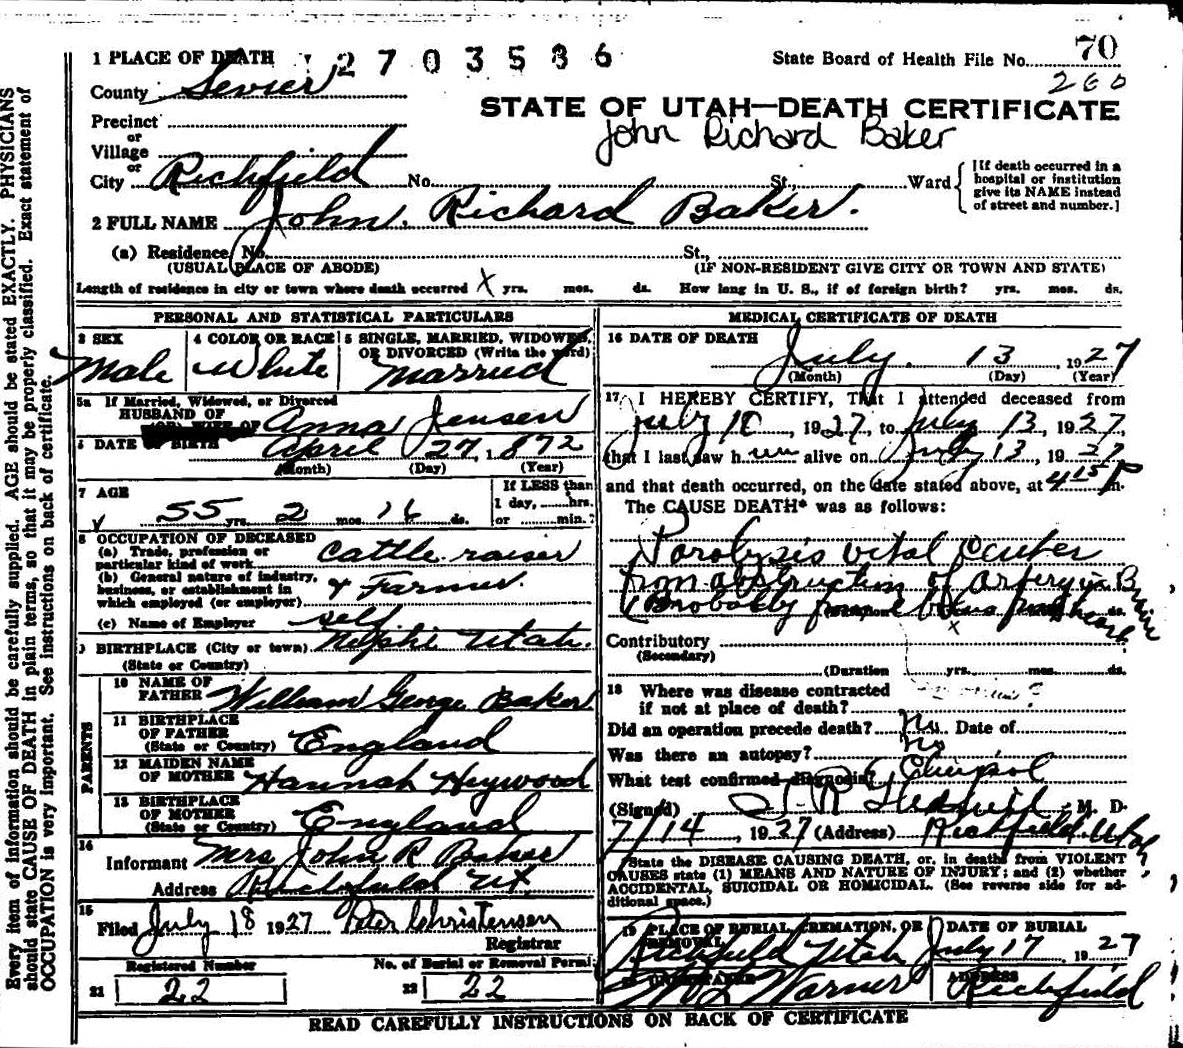 1 PLACE OF DEATH 2703536 State Board of Health File No. 70
260
County Sevier
STATE OF UTAH—DEATH CERTIFICATE
Precinct
John Richard Baker
or
Village
or
City Richfield No. St., Ward
[If death occurred in a hospital or institution give its NAME instead of street and number.]
2 FULL NAME John Richard Baker.
(a) Residence, No. St.,
(USUAL PLACE OF ABODE) (IF NON-RESIDENT GIVE CITY OR TOWN AND STATE)
Length of residence in city or town where death occurred X yrs. mos. ds. How long in U. S., if of foreign birth? yrs. mos. ds.
PERSONAL AND STATISTICAL PARTICULARS
3 SEX
Male
4 COLOR OR RACE
White
5 SINGLE, MARRIED, WIDOWED, OR DIVORCED (Write the word)
Married
5a If Married, Widowed, or Divorced
HUSBAND OF
(OR) WIFE OF Anna Jensen
6 DATE OF BIRTH April 27, 1872
(Month) (Day) (Year)
7 AGE
55 yrs. 2 mos. 16 ds.
If LESS than
1 day, hrs.
or min.?
8 OCCUPATION OF DECEASED
(a) Trade, profession or
particular kind of work Cattle raiser
(b) General nature of industry,
business, or establishment in
which employed (or employer) & Farmer.
(c) Name of Employer self
9 BIRTHPLACE (City or town) Nephi Utah.
(State or Country)
PARENTS
10 NAME OF
FATHER William George Baker
11 BIRTHPLACE
OF FATHER
(State or Country) England
12 MAIDEN NAME
OF MOTHER Hannah Heywood
13 BIRTHPLACE
OF MOTHER
(State or Country) England
14
Informant Mrs John R Baker
Address Richfield Ut.
15
Filed July 18 1927 Peter Christensen
Registrar
Registered Number No. of Burial or Removal Permit
21 22 22 22
MEDICAL CERTIFICATE OF DEATH
16 DATE OF DEATH
July 13 1927
(Month) (Day) (Year)
17 I HEREBY CERTIFY, That I attended deceased from
July 10, 1927, to July 13, 1927,
that I last saw h im alive on July 13, 1927
and that death occurred, on the date stated above, at 4 15 P m.
The CAUSE DEATH* was as follows:
Paralysis vital center
from obstruction of artery in Brain
(Probably from embolus from heart
Contributory
(Secondary)
(Duration yrs. mos. ds.
18 Where was disease contracted
if not at place of death? ?
Did an operation precede death? No Date of
Was there an autopsy? No
What test confirmed diagnosis? Clinical
(Signed) M. D.
7/14, 1927 (Address) Richfield Utah
*State the DISEASE CAUSING DEATH, or, in deaths from VIOLENT
CAUSES state (1) MEANS AND NATURE OF INJURY; and (2) whether
ACCIDENTAL, SUICIDAL OR HOMICIDAL. (See reverse side for additional space.)
19 PLACE OF BURIAL, CREMATION, OR REMOVAL
Richfield Utah
DATE OF BURIAL
July 17 1927
UNDERTAKER
Warner
ADDRESS
Richfield
READ CAREFULLY INSTRUCTIONS ON BACK OF CERTIFICATE
Every item of information should be carefully supplied. AGE should be stated EXACTLY. PHYSICIANS
should state CAUSE OF DEATH in plain terms, so that it may be properly classified. Exact statement of
OCCUPATION is very important. See instructions on back of certificate.